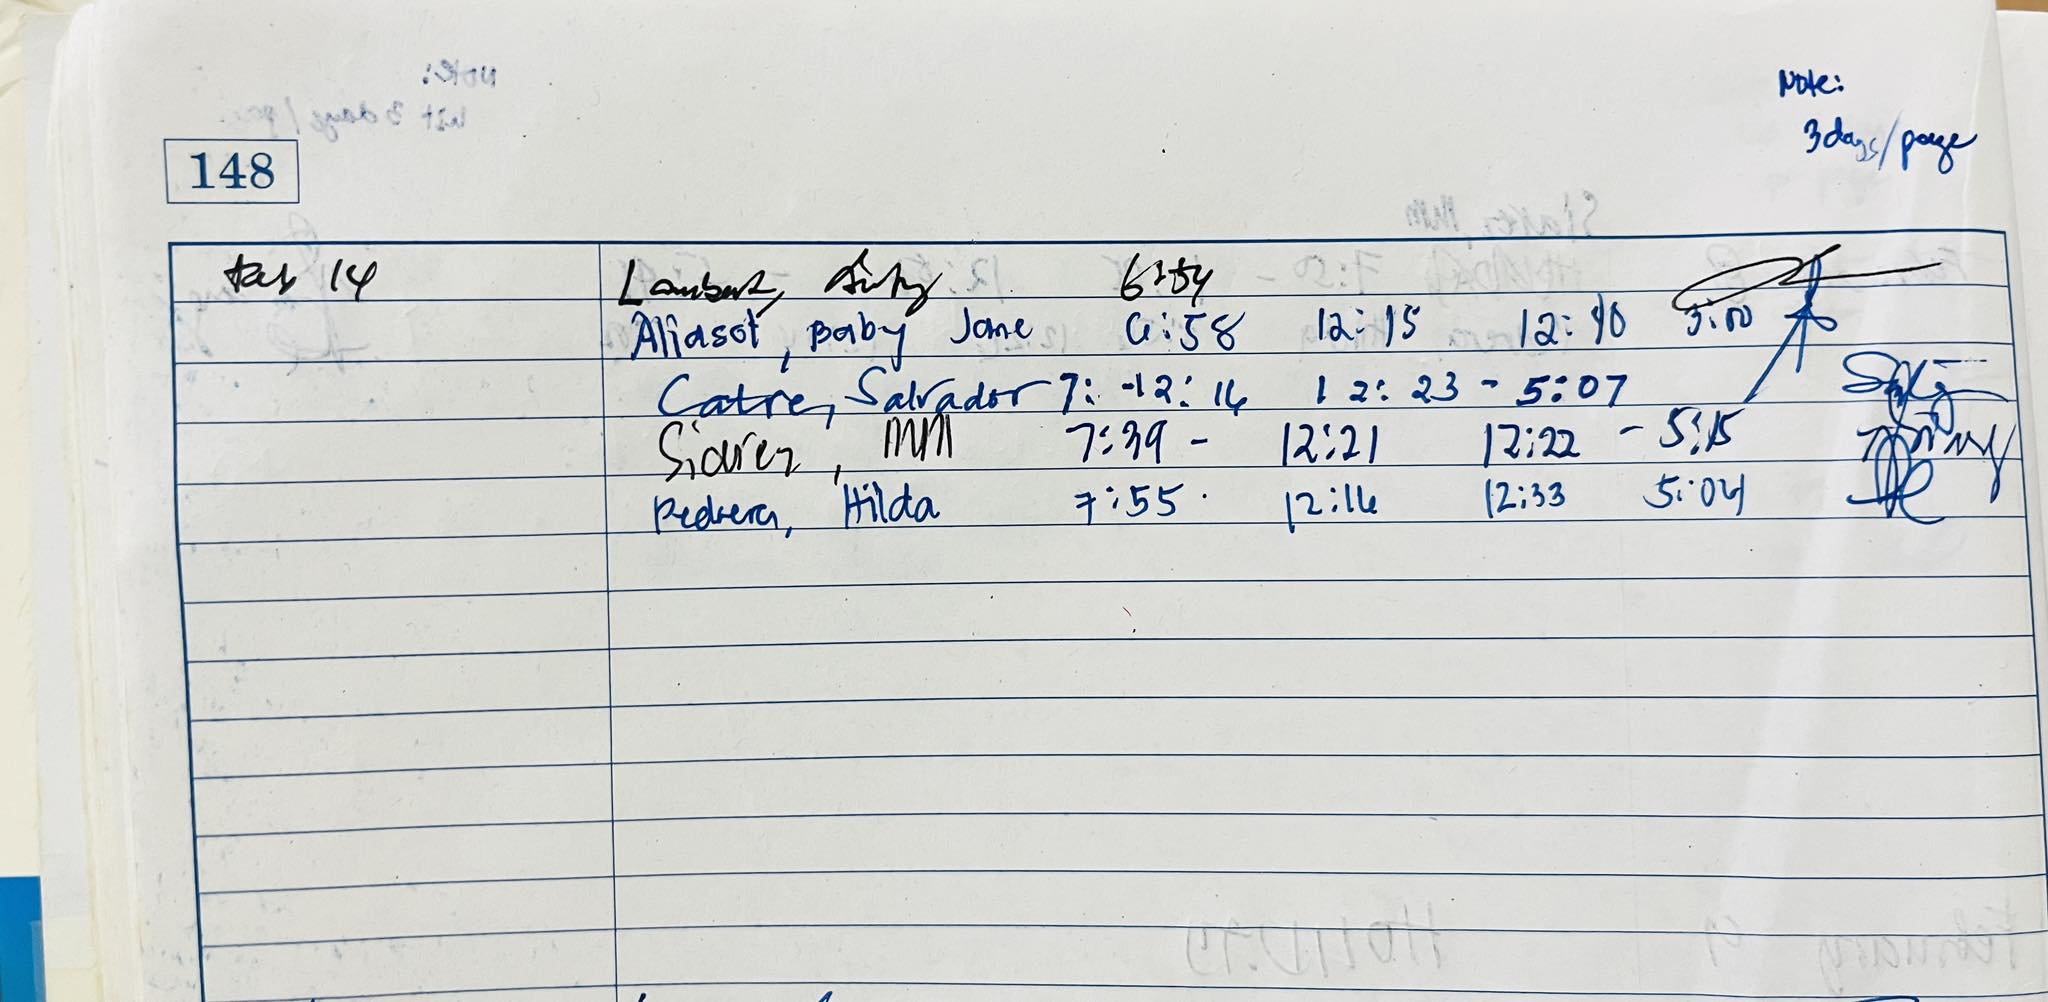 Note:
3 days/page
148
Feb 14 Lambert, 6:54
Aliasot, Baby Jane 6:58 12:15 12:40 5:00
Catre, Salvador 7: -12:16 12:23 - 5:07
Siarez, MM 7:39 - 12:21 12:22 - 5:15
Pedrera, Hilda 7:55 12:16 12:33 5:04